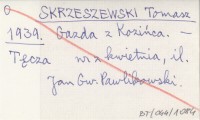 SKRZESZEWSKI Tomasz
1939. Gazda z Kozińca. –
Tęcza nr 2 kwietnia, il.
Jan Gw. Pawlikowski.
BT/044/1084